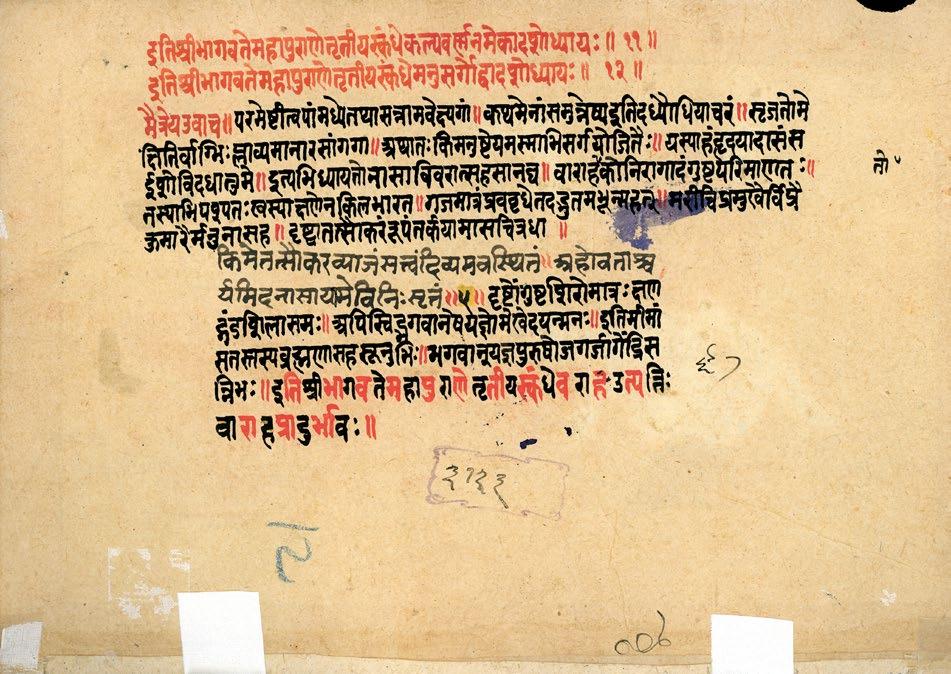 इतिश्रीभागवतेमहापुराणेतृतीयस्कंधेकल्पवर्णनमेकादशोध्यायः॥ ११॥
इतिश्रीभागवतेमहापुराणेतृतीयस्कंधेमनुसर्गोद्वादशोध्यायः॥ १२॥
मैत्रेयउवाच॥ परमेष्टीत्वपांमध्येतथासन्नामवेक्ष्यगां॥ कथमेनांसमुन्नेष्यइतिदध्यौधियाचिरं॥ सृजतोमे
क्षितिर्वार्भिःप्लाव्यमानारसांगगा॥ अथातःकिमनुष्टेयमस्माभिसर्गयोजितैः॥ यस्याहंहृदयादासंस
ईशोविदधातुमे॥ इत्यभिध्यायतोनासाविवरात्सहसानघ॥ वाराहतोकोनिरागादंगुष्टपरिमाणतः॥
तस्याभिपश्यतःखस्थःक्षणेनकिलभारत॥ गजमात्रप्रववृधेतदद्भुतमभून्महत्॥ मरीचिप्रमुखैर्विप्रैः
कुमारैर्मनुनासह॥ दृष्ट्वातत्सौकरंरूपंतर्कयामासचित्रधा॥
किमेतत्सौकरव्याजंसत्त्वंदिव्यमवस्थितं॥ अहोवताश्च
र्यमिदंनासायामेविनिःसृतं॥ ५॥ दृष्टोंगुष्टशिरोमात्रःक्षण
द्गंडशिलासमः॥ अपिस्विद्भगवानेषयज्ञोमेखेदयन्मनः॥ इतिमीमां
सतस्तस्यब्रह्मणासहसूनुभिः॥ भगवान्यज्ञपुरुषोजगर्जागेंद्रस
न्निभः॥ इतिश्रीभागवतेमहापुराणेतृतीयस्कंधेवराह-उत्पत्तिः
वाराहप्रादुर्भावः॥